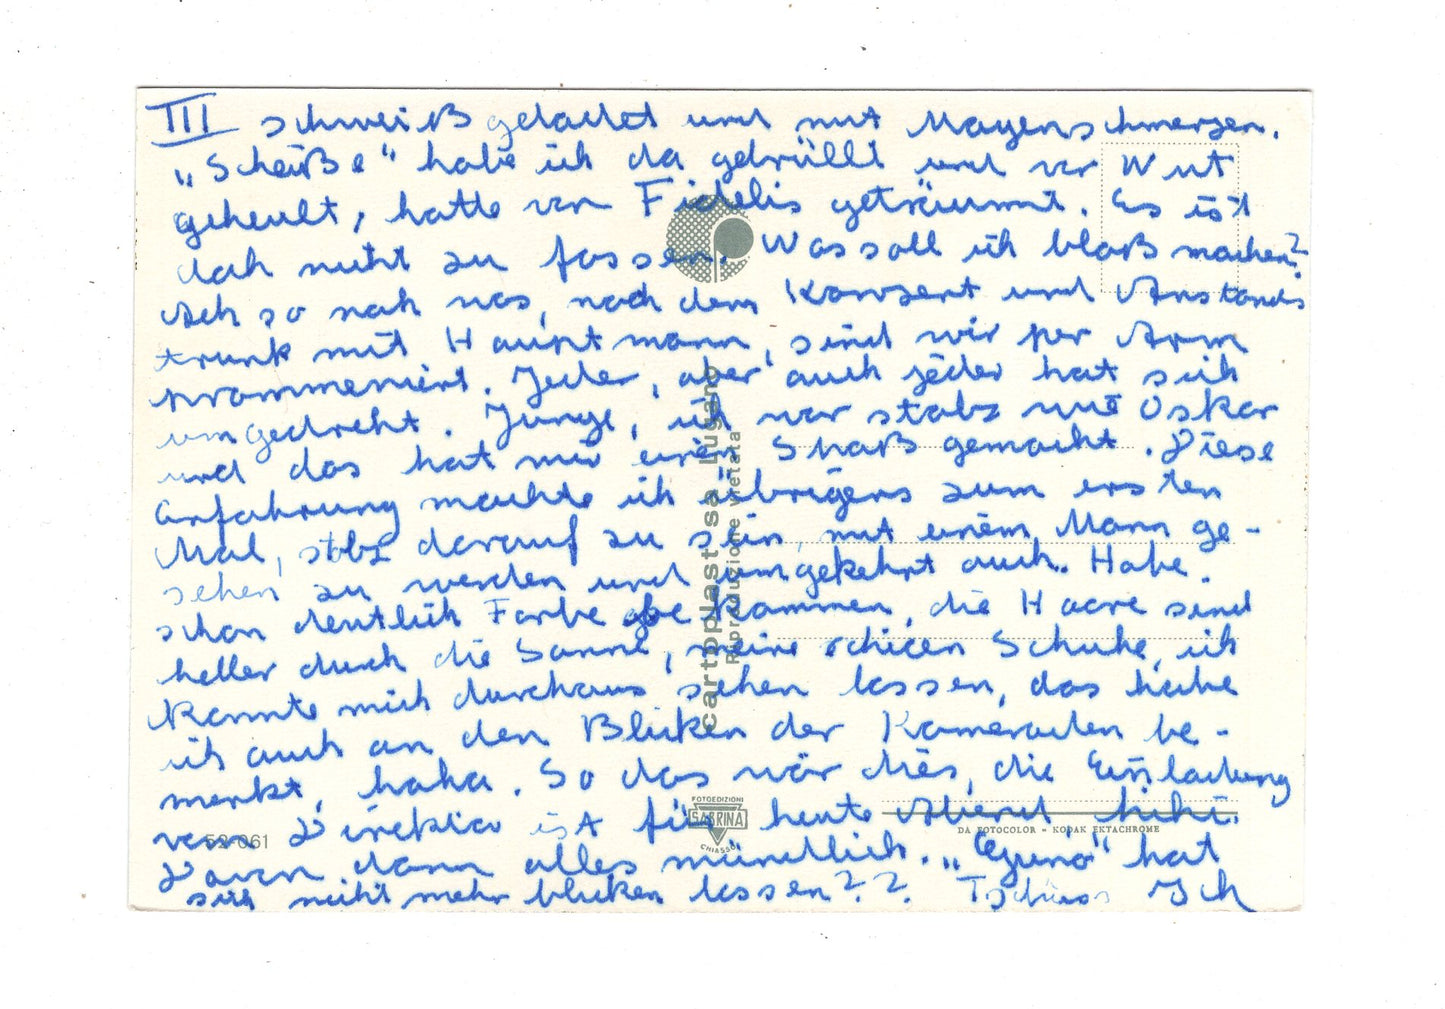 III schweißgebadet und mit Magenschmerzen.
„Scheiße“ habe ich da gebrüllt und vor Wut
geheult, hatte von Fidelis geträumt. Es ist
doch nicht zu fassen. Was soll ich bloß machen?
Ach so noch was, nach dem Konzert und Anstands
trunk mit Hauptmann, sind wir per Arm
prommeniert. Jeder, aber auch jeder hat sich
umgedreht. Junge, ich war stolz mit Oskar
und das hat mir einen Spaß gemacht. Diese
Erfahrung machte ich übrigens zum ersten
Mal, stolz darauf zu sein, mit einem Mann ge-
sehen zu werden und umgekehrt auch. Habe
schon deutlich Farbe bekommen, die Haare sind
heller durch die Sonne, meine schicen Schuhe, ich
konnte mich durchaus sehen lassen, das habe
ich auch an den Blicken der Kameraden be-
merkt, haha. So das wär dies, die Einladung
vom Direktor ist für heute Abend, hihi.
Davon dann alles mündlich. „Guno“ hat
sich nicht mehr blicken lassen?? Tschüss Ich
cartoplast sa Lugano
Riproduzione vietata
FOTOEDIZIONI
SABRINA
CHIASSO
DA FOTOCOLOR - KODAK EKTACHROME
52-061